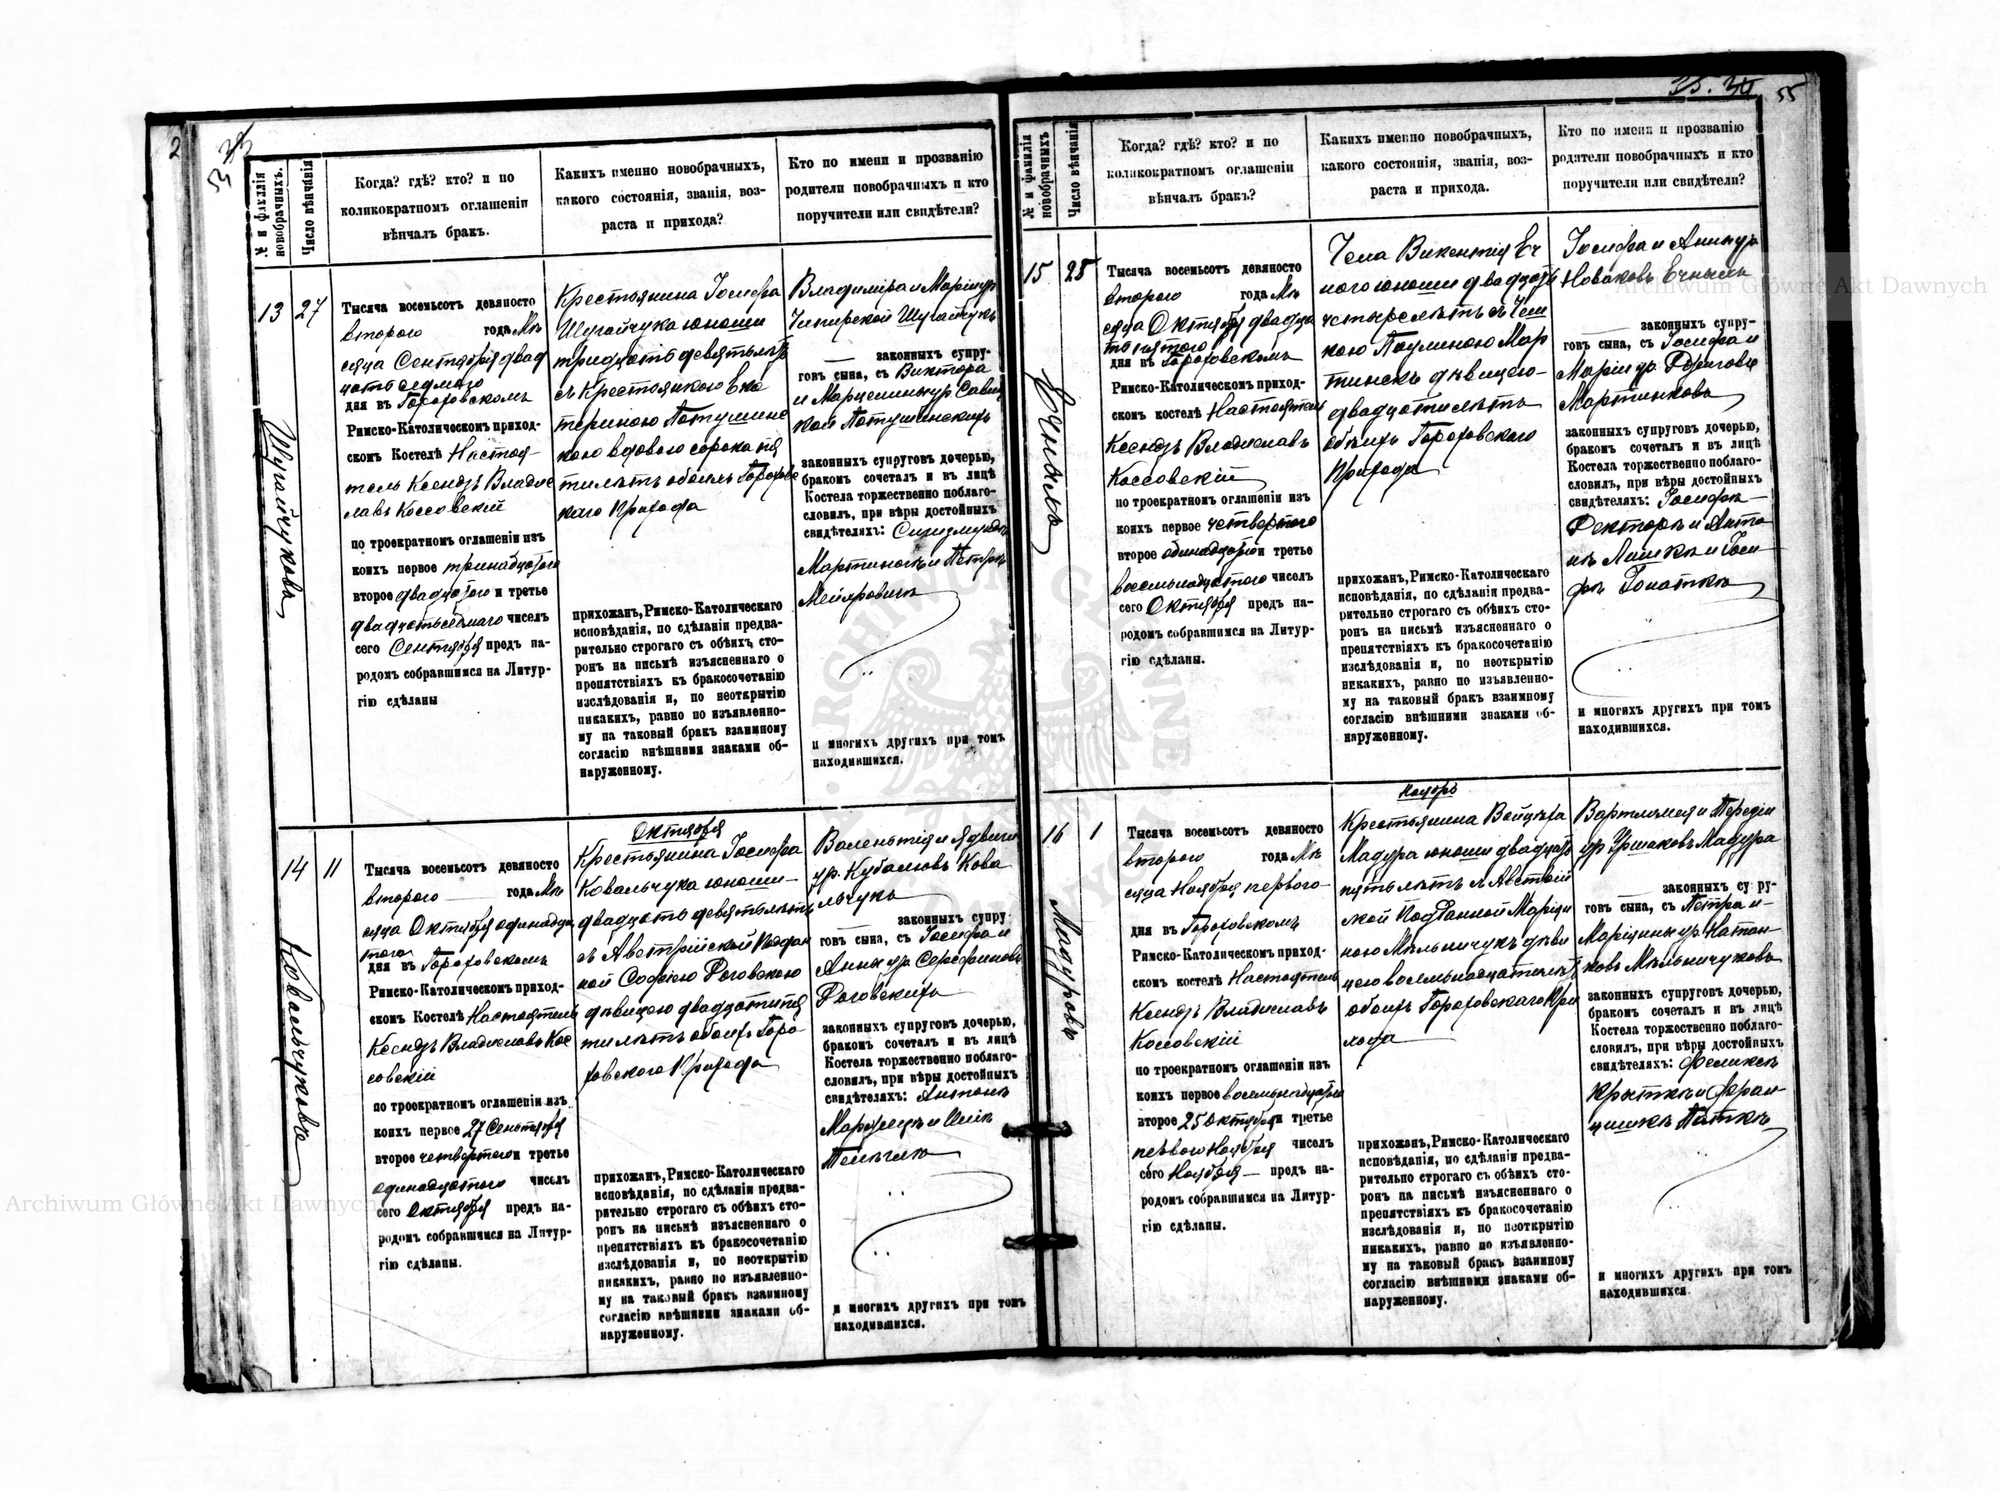 2
33
54
№ и фамилія новобрачныхъ.
Число вѣнчанія
Когда? гдѣ? кто? и по
коликократномъ оглашеніи
вѣнчалъ бракъ.
Какихъ именно новобрачныхъ,
какого состоянія, званія, воз-
раста и прихода?
Кто по имени и прозванію
родители новобрачныхъ и кто
поручители или свидѣтели?
13
27
Шугайчукова
Тысяча восемьсотъ девяносто
втораго года Мѣ
сяца Сентября двад
цать седмаго
дня въ Гороховскомъ
Римско-Католическомъ приход-
скомъ Костелѣ Настоя-
тель Ксендзъ Владис
лавъ Коссовскій
по троекратномъ оглашеніи изъ
коихъ первое тринадцатого
второе двадцатого и третье
двадцатьседмаго чиселъ
сего Сентября предъ на-
родомъ собравшимся на Литур-
гію сдѣланы
Крестьянина Іосифа
Шугайчука юноши
тридцать девятьлѣтъ
съ Крестьянкою Ека
териною Потушинс
кою вдовою сорока пя
тилѣтъ обоихъ Горохов
скаго Прихода
прихожанъ, Римско-Католическаго
исповѣданія, по сдѣланіи предва-
рительно строгаго съ обѣихъ сто-
ронъ на письмѣ изъясненнаго о
препятствіяхъ къ бракосочетанію
изслѣдованія и, по неоткрытію
никакихъ, равно по изъявленно-
му на таковый бракъ взаимному
согласію внѣшними знаками об-
наруженному.
Владиміра и Маріи ур
Шугайчукъ
законныхъ супру-
говъ сына, съ Виктора
и Марцелины ур Савиц
кой Потушинскихъ
законныхъ супруговъ дочерью,
бракомъ сочеталъ и въ лицѣ
Костела торжественно поблаго-
словилъ, при вѣры достойныхъ
свидѣтеляхъ: Сигизмундѣ
Мартинекъ и Петрѣ
и многихъ другихъ при томъ
находившихся.
14
11
Ковальчуковъ
Октября
Тысяча восемьсотъ девяносто
втораго года Мѣ
сяца Октября одинадца
таго
дня въ Гороховскомъ
Римско-Католическомъ приход-
скомъ Костелѣ Настоятель
Ксендзъ Владиславъ Кос
совскій
по троекратномъ оглашеніи изъ
коихъ первое 27 Сентября
второе четвертаго и третье
одинадцатого чиселъ
сего Октября предъ на-
родомъ собравшимся на Литур-
гію сдѣланы.
Крестьянина Іосифа
Ковальчука юноши
двадцать девятьлѣтъ
съ Австрійской Поддан
ной Софіею Роговскою
дѣвицею двадцатипя
тилѣтъ обоихъ Горо
ховского Прихода
прихожанъ, Римско-Католическаго
исповѣданія, по сдѣланіи предва-
рительно строгаго съ обѣихъ сто-
ронъ на письмѣ изъясненнаго о
препятствіяхъ къ бракосочетанію
изслѣдованія и, по неоткрытію
никакихъ, равно по изъявленно-
му на таковый бракъ взаимному
согласію внѣшними знаками об-
наруженному.
Валентія и Ядвиги
ур. Кубасовъ Кова
льчукъ
законныхъ супру-
говъ сына, съ Іосифа и
Анны ур Серафиновъ
Роговскихъ
законныхъ супруговъ дочерью,
бракомъ сочеталъ и въ лицѣ
Костела торжественно поблаго-
словилъ, при вѣры достойныхъ
свидѣтеляхъ: Антонѣ
и многихъ другихъ при томъ
находившихся.
55
№ и фамилія новобрачныхъ
Число вѣнчанія
Когда? гдѣ? кто? и по
коликократномъ оглашеніи
вѣнчалъ бракъ?
Какихъ именно новобрачныхъ,
какого состоянія, званія, воз-
раста и прихода.
Кто по имени и прозванію
родители новобрачныхъ и кто
поручители или свидѣтели?
15
25
Ечныхъ
Тысяча восемьсотъ девяносто
втораго года Мѣ
сяца Октября двадца
тьпятого
дня въ Гороховскомъ
Римско-Католическомъ приход-
скомъ костелѣ Настоятель
Ксендзъ Владиславъ
Коссовскій
по троекратномъ оглашеніи изъ
коихъ первое четвертаго
второе одинадцатои третье
восемьнадцатого чиселъ
сего Октября предъ на-
родомъ собравшимся на Литур-
гію сдѣланы.
Чеха Викентія Еч
ного юноши двадцать
четырелѣтъ съ Чеш
кою Паулиною Мар
тинекъ дѣвицею
двадцатилѣтъ
обоихъ Гороховскаго
Прихода
прихожанъ, Римско-Католическаго
исповѣданія, по сдѣланіи предва-
рительно строгаго съ обѣихъ сто-
ронъ на письмѣ изъясненнаго о
препятствіяхъ къ бракосочетанію
изслѣдованія и, по неоткрытію
никакихъ, равно по изъявленно-
му на таковый бракъ взаимному
согласію внѣшними знаками об-
наруженному.
Іосифа и Анны ур
Новаковъ Ечныхъ
законныхъ супру-
говъ сына, съ Іосифа и
Маріи ур
Мартинковъ
законныхъ супруговъ дочерью,
бракомъ сочеталъ и въ лицѣ
Костела торжественно поблаго-
словилъ, при вѣры достойныхъ
свидѣтеляхъ: Іосифѣ
Фекторъ и Анто
нѣ Лишкѣ и Іоси
фѣ Гопаткѣ
и многихъ другихъ при томъ
находившихся.
16
1
Мадуровъ
Ноября
Тысяча восемьсотъ девяносто
втораго года Мѣ
сяца Ноября первого
дня въ Гороховскомъ
Римско-Католическомъ приход-
скомъ костелѣ Настоятель
Ксендзъ Владиславъ
Коссовскій
по троекратномъ оглашеніи изъ
коихъ первое восемьнадцатаго
второе 25 Октября и третье
первого Ноября чиселъ
сего Ноября предъ на-
родомъ собравшимся на Литур-
гію сдѣланы.
Крестьянина Войцеха
Мадура юноши двадцать
пятьлѣтъ съ Австрій
ской Подданной Маріан
ною Мѣльничукъ дѣви
цею восемьнадцатилѣтъ
обоихъ Гороховскаго При
хода
прихожанъ, Римско-Католическаго
исповѣданія, по сдѣланіи предва-
рительно строгаго съ обѣихъ сто-
ронъ на письмѣ изъясненнаго о
препятствіяхъ къ бракосочетанію
изслѣдованія и, по неоткрытію
никакихъ, равно по изъявленно-
му на таковый бракъ взаимному
согласію внѣшними знаками об-
наруженному.
Вартломея и Терезіи
ур Уршаковъ Мадура
законныхъ супру-
говъ сына, съ Петра и
Маріанны ур. Натан-
ковъ Мѣльничуковъ
законныхъ супруговъ дочерью,
бракомъ сочеталъ и въ лицѣ
Костела торжественно поблаго-
словилъ, при вѣры достойныхъ
свидѣтеляхъ: Феликсѣ
Крыткѣ и Фран-
цишкѣ Пяткѣ
и многихъ другихъ при томъ
находившихся.
Archiwum Główne Akt Dawnych
Archiwum Główne Akt Dawnych